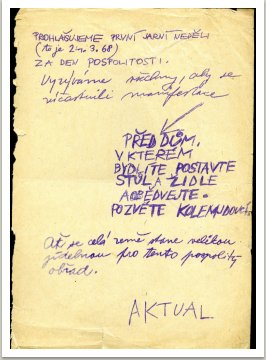 PROHLAŠUJEME PRVNÍ JARNÍ NEDĚLI
(to je 24. 3. 68)
ZA DEN POSPOLITOSTI.
Vyzýváme všechny, aby se
zúčastnili manifestace
PŘED DŮM,
V KTERÉM
BYDLÍTE POSTAVTE
STŮL A ŽIDLE
A OBĚDVEJTE.
POZVĚTE KOLEMJDOUCÍ.
Ať se celá země stane velikou
jídelnou pro tento pospolitý
obřad.
AKTUAL